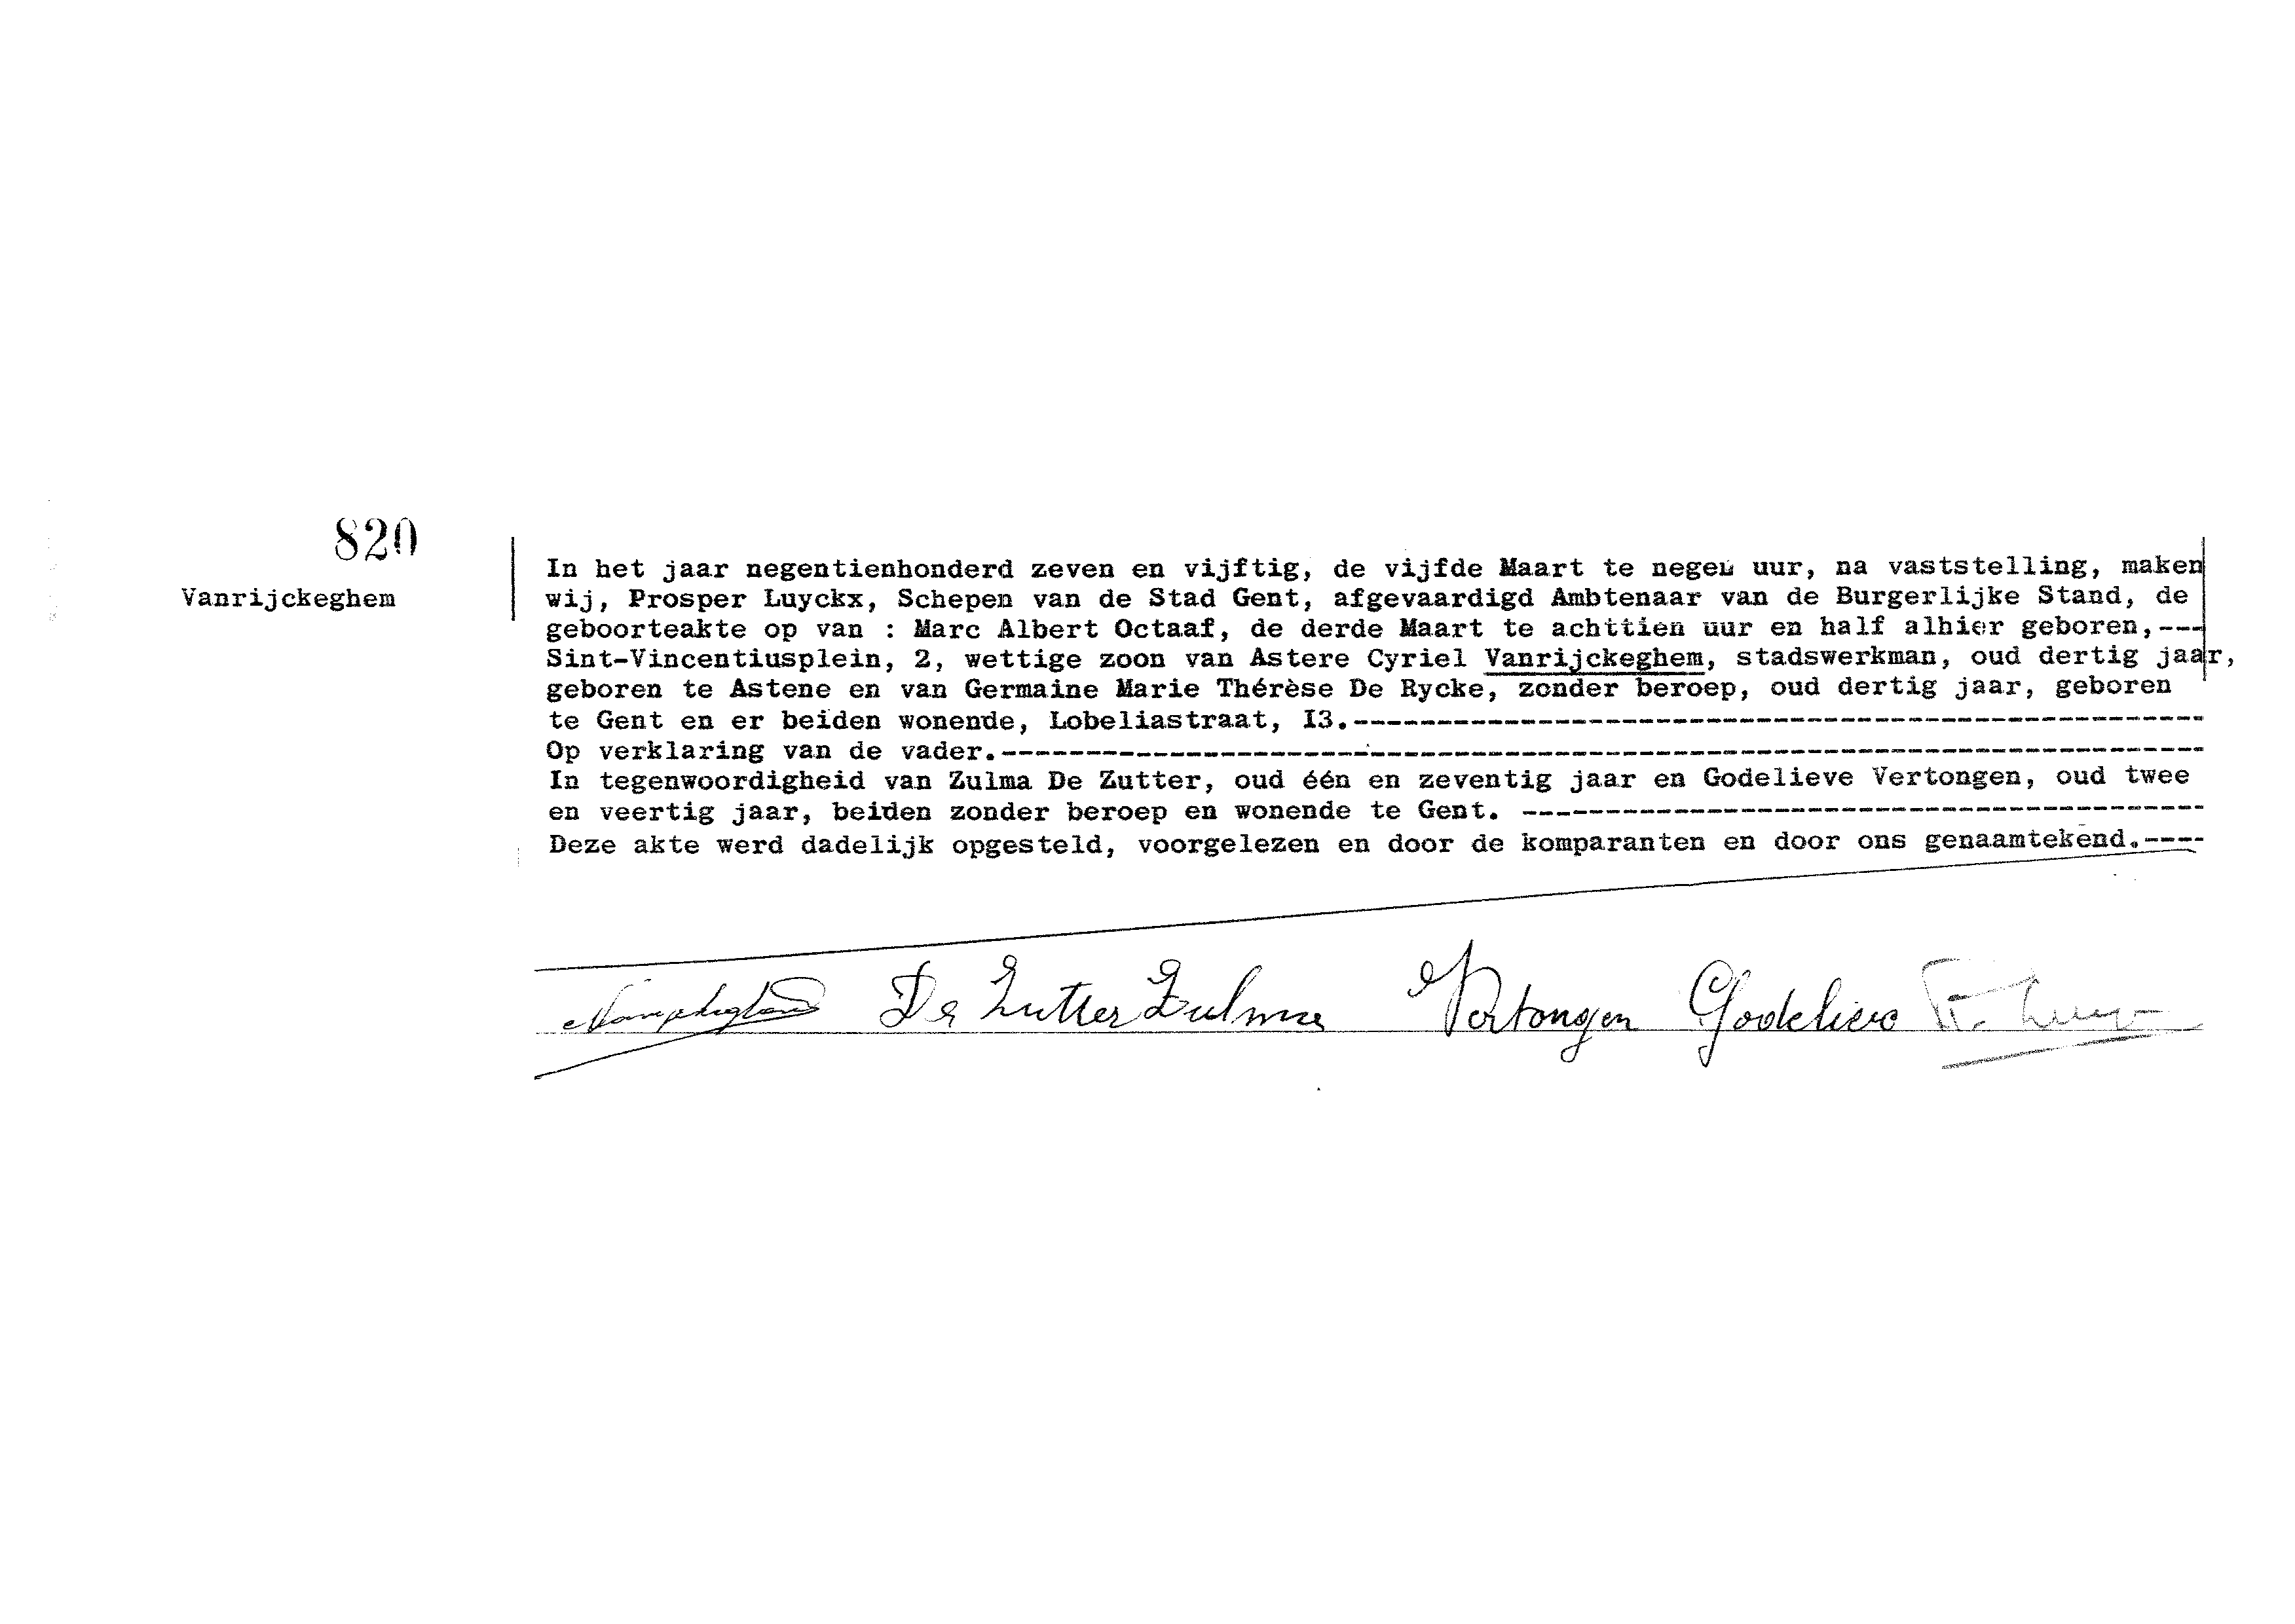 820
Vanrijckeghem
In het jaar negentienhonderd zeven en vijftig, de vijfde Maart te negen uur, na vaststelling, maken
wij, Prosper Luyckx, Schepen van de Stad Gent, afgevaardigd Ambtenaar van de Burgerlijke Stand, de
geboorteakte op van : Marc Albert Octaaf, de derde Maart te achttien uur en half alhier geboren,---
Sint-Vincentiusplein, 2, wettige zoon van Astere Cyriel Vanrijckeghem, stadswerkman, oud dertig jaar,
geboren te Astene en van Germaine Marie Thérèse De Rycke, zonder beroep, oud dertig jaar, geboren
te Gent en er beiden wonende, Lobeliastraat, I3.---------------------------------------------------
Op verklaring van de vader.------------------------------------------------------------------------
In tegenwoordigheid van Zulma De Zutter, oud één en zeventig jaar en Godelieve Vertongen, oud twee
en veertig jaar, beiden zonder beroep en wonende te Gent. -----------------------------------------
Deze akte werd dadelijk opgesteld, voorgelezen en door de komparanten en door ons genaamtekend.----
De Zutter Zulma Vertongen Godelieve